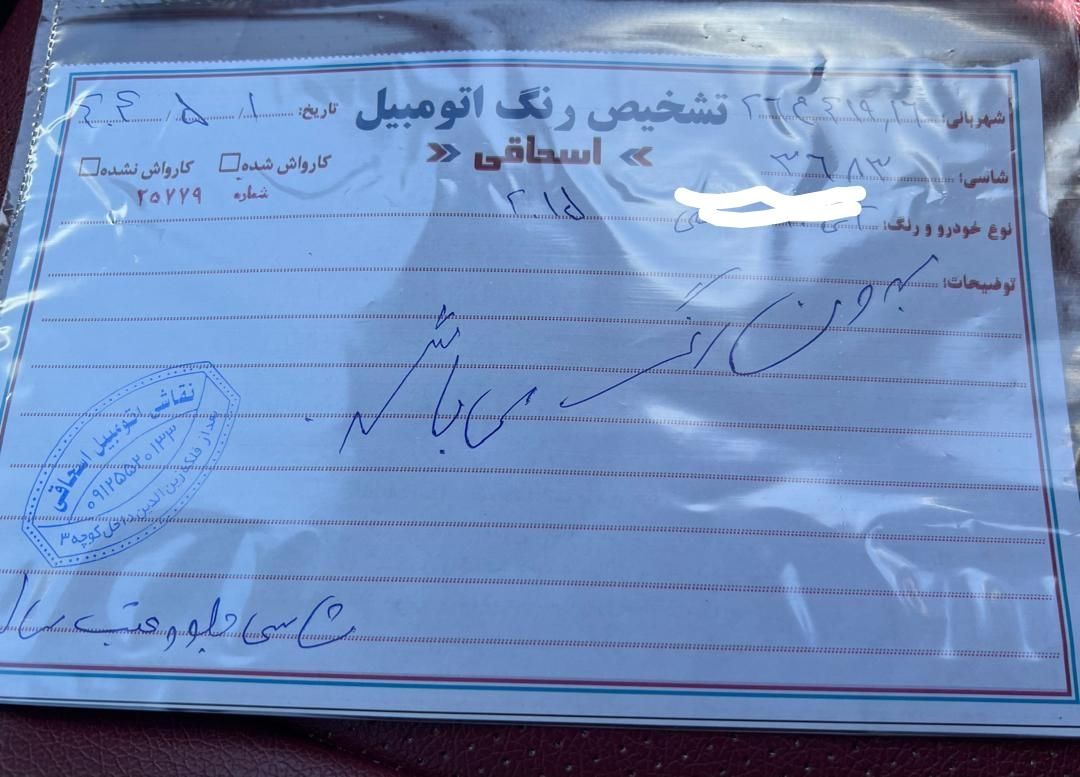 تشخیص رنگ اتومبیل
» اسحاقی «
شهربانی:
تاریخ: ۱/۵/۴۰۴
شاسی: ۳۶۸۳
کارواش شده □ کارواش نشده □
شماره ۲۵۷۷۹
نوع خودرو و رنگ: ۲۰۱۵
توضیحات:
بدون رنگ
می باشد.
نقاشی اتومبیل اسحاقی
۰۹۱۲۵۵۲۰۱۳۳
بعد از فلکه زین الدین داخل کوچه ۳
شاسی جلو و عقب سالم